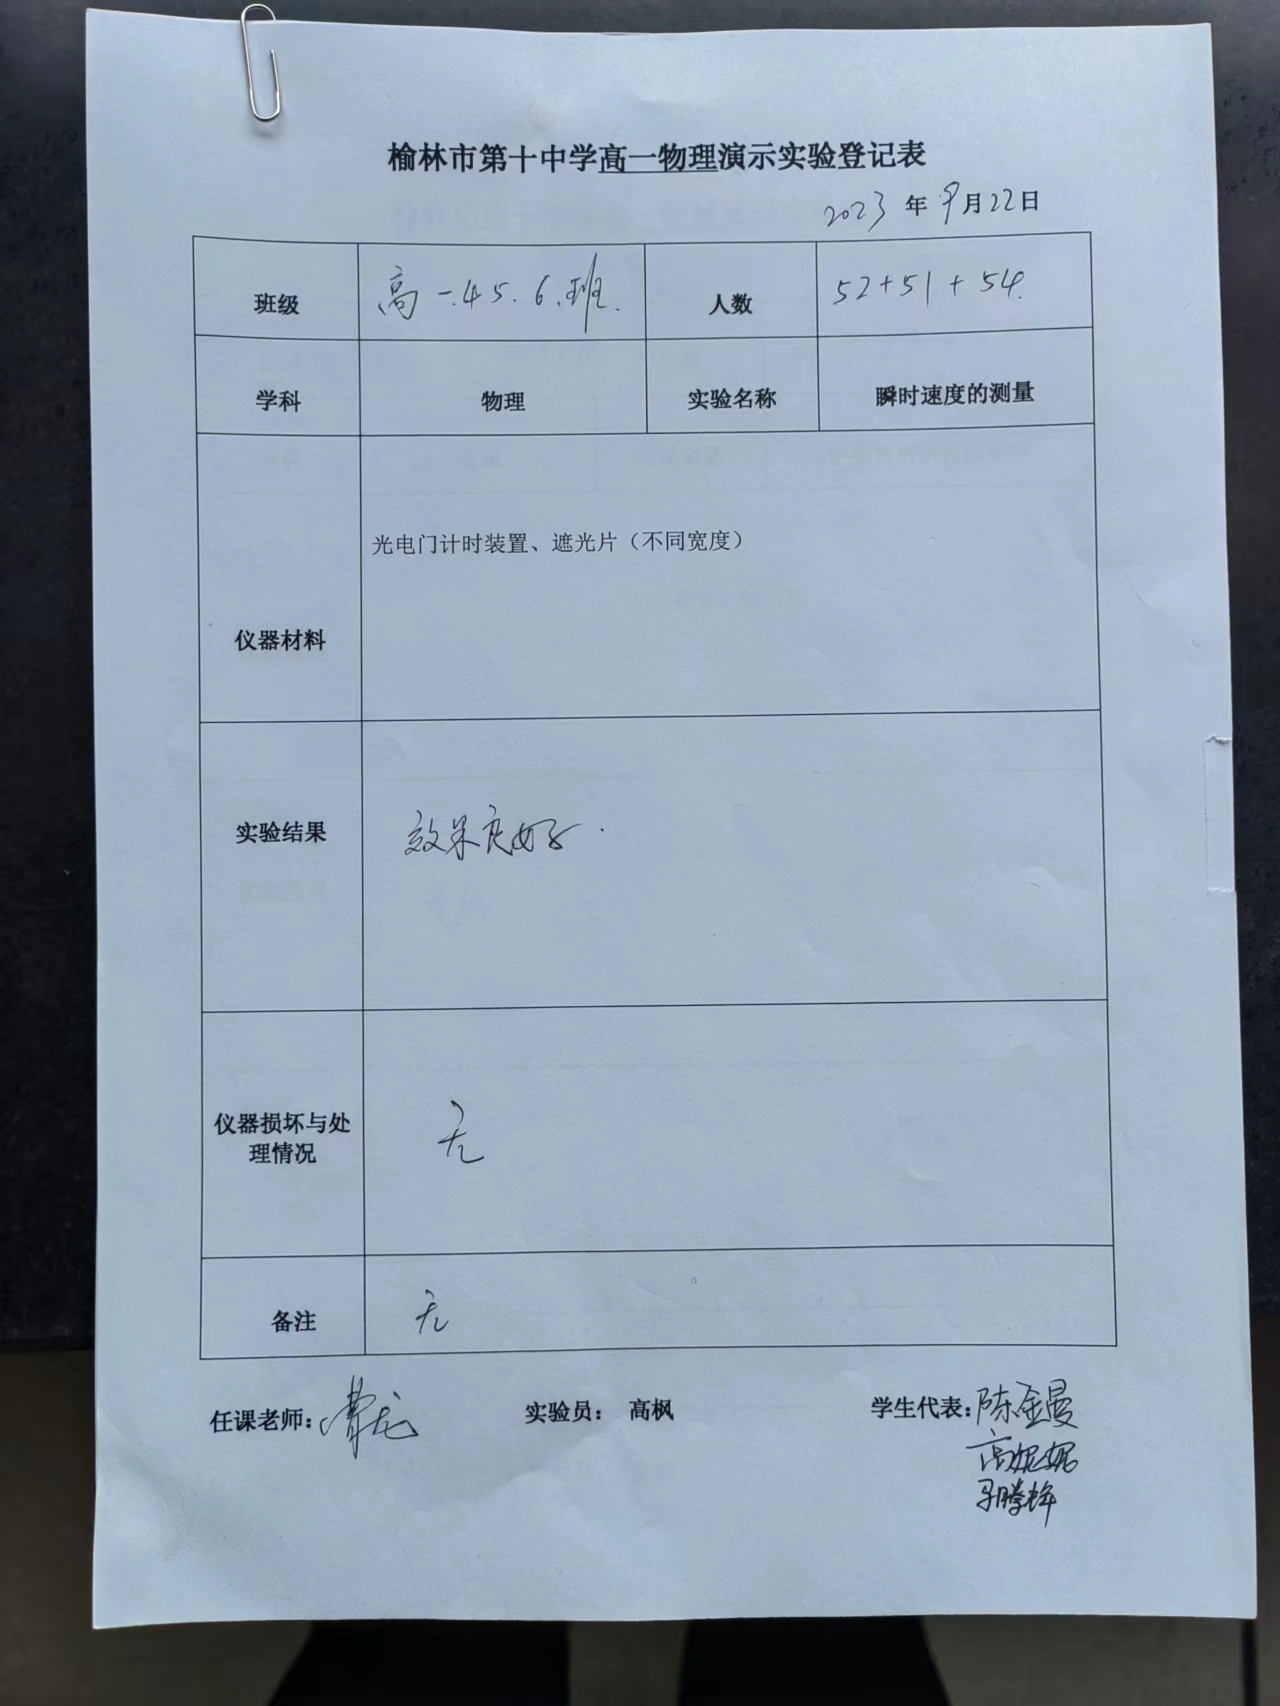 榆林市第十中学高一物理演示实验登记表
2023年9月22日
班级 高一.4 5. 6.班. 人数 52+51+54.
学科 物理 实验名称 瞬时速度的测量
光电门计时装置、遮光片（不同宽度）
仪器材料
实验结果 效果良好.
仪器损坏与处
理情况 无
备注 无
任课老师： 实验员： 高枫 学生代表：陈金曼
高妮妮